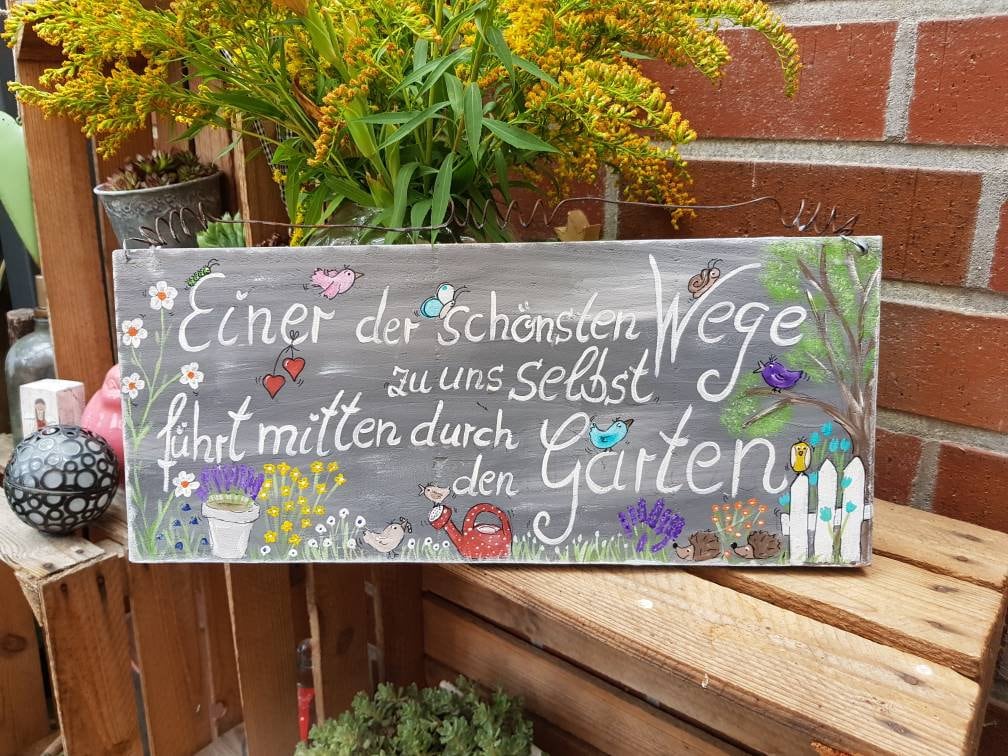 Einer der schönsten Wege
zu uns selbst
führt mitten durch
den Garten